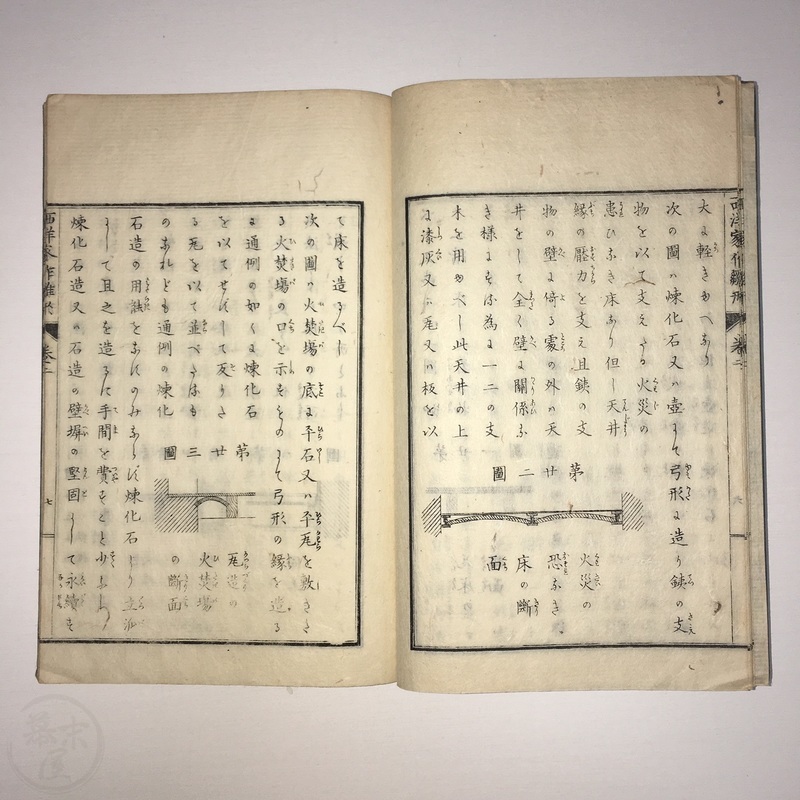 西洋家作雛形 卷二
六
大に軽きゆへなり
次の圖ハ煉化石又ハ壺にて弓形に造り鉄の支
物を以て支えたる火災の
患ひなき床なり但し天井
縁の壓力を支え且鉄の支
物の壁に倚る處の外の天
井をして全く壁に關係な
き様にする為に一二の支
木を用ゆべし此天井の上
に漆灰又ハ瓦又ハ板を以
第廿二圖
火災の
恐なき
床の斷
面
て床を造るべし
次の圖ハ火焚場の底に平石又ハ平瓦を敷きた
る火焚場の口を示すものにて弓形の縁を造る
に通例の如くに煉化石
を以てせずして反りた
る瓦を以て並べたるも
のなれども通例の煉化
第廿三圖
瓦造の
火焚場
の斷面
石造の用をなすのみならず煉化石より立派
にして且之を造るに手間を費すこと少なし
煉化石造又ハ石造の壁塀の堅固にして永續す
西洋家作雛形 卷二
七
幕末屋